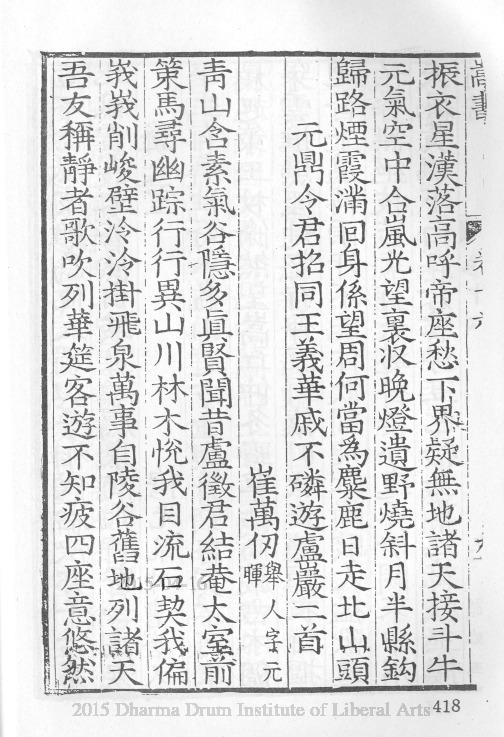 嵩書
卷十六
振衣星漢落高呼帝座愁下界疑無地諸天接斗牛
元氣空中合嵐光望裏收晚燈遺野燒斜月半縣鈎
歸路煙霞滿回身係望周何當為麋鹿日走北山頭
元鼎令君招同王義華戚不磷遊盧巖二首
崔萬仞舉人字元暉
青山含素氣谷隱多眞賢聞昔盧徵君結菴太室前
策馬尋幽踪行行異山川林木悅我目流石契我偏
峩峩削峻壁泠泠掛飛泉萬事自陵谷舊地列諸天
吾友稱靜者歌吹列華筵客遊不知疲四座意悠然
2015 Dharma Drum Institute of Liberal Arts
418